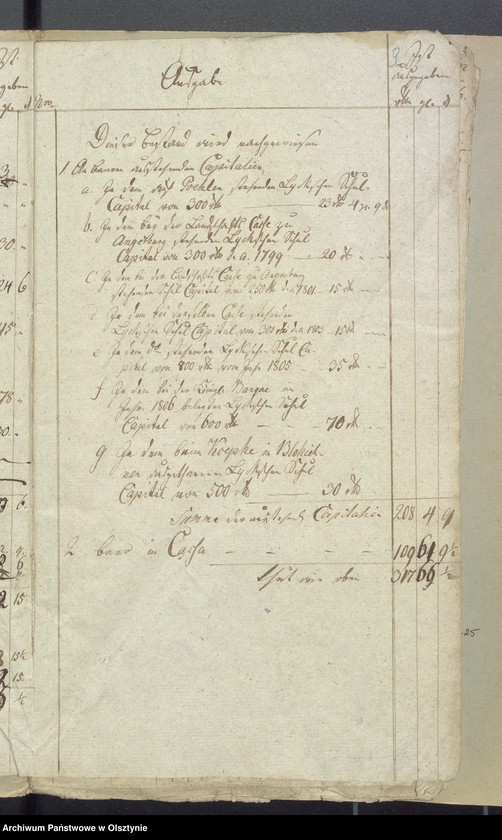 Ausgabe
Ist
ausgegeben
rthl gr. d
No.
Dieser Bestand wird nachgewiesen
1. An baaren ausstehenden Capitalien
a. In dem auf Pochlen stehenden Lyckschen Schul
Capital von 300 rth — 23 rth 4 gr. 9 d
b. In dem bey der Landschafts Casse zu
Angerburg stehenden Lyckschen Schul
Capital von 300 rth d. a. 1799 — 20 rth
c. In dem bei der Landschafts Casse zu Angerburg
stehenden Schul Capital von 250 rth d. a. 1801 — 15 rth
d. In dem bei derselben Casse stehenden
Lyckschen Schul Capital von 300 rth d. a. 1803 — 15 rth
e. In dem dt. stehenden Lyckschen Schul Ca-
pital von 800 rth vom Jahr 1805 — 35 rth
f. In dem bei der Königl. Banque im
Jahr 1806 belegten Lyckschen Schul
Capital von 600 rth — 70 rth
g. In dem beim Koepke in
Lyckschen Schul
Capital von 500 rth — 30 rth
Summe der ausstehenden Capitalien 208 4 9
2. baar in Cassa — 109 61 9½
Thut wie oben 317 66 ½
25
Archiwum Państwowe w Olsztynie